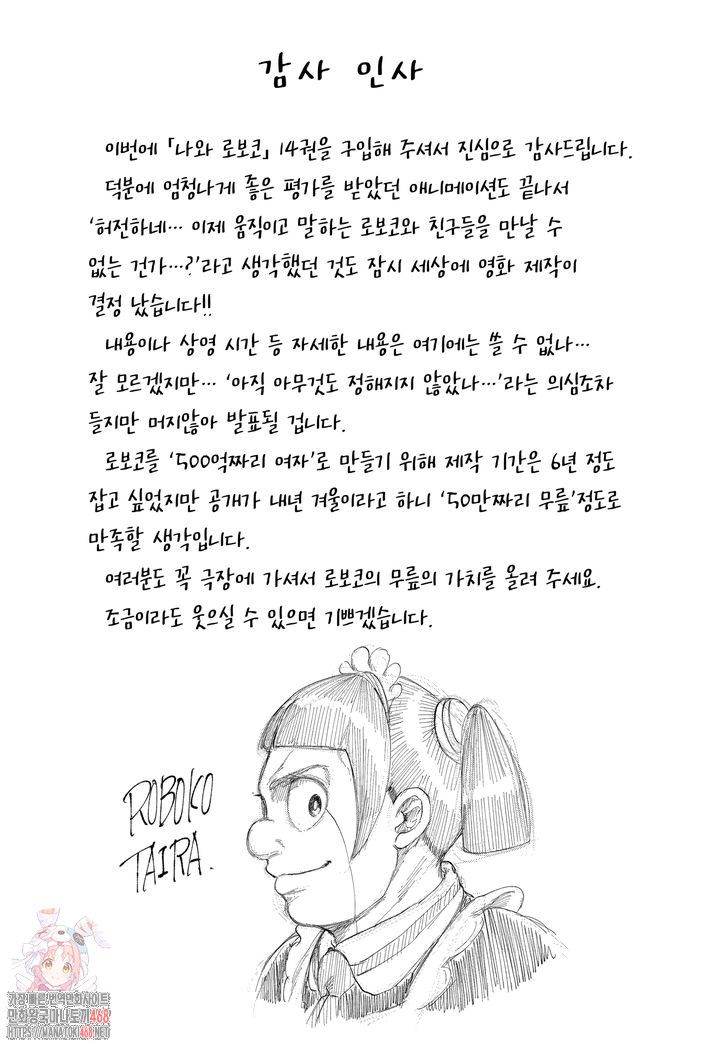 감사 인사
이번에 「나와 로보코」 14권을 구입해 주셔서 진심으로 감사드립니다.
덕분에 엄청나게 좋은 평가를 받았던 애니메이션도 끝나서
'허전하네… 이제 움직이고 말하는 로보코와 친구들을 만날 수
없는 건가…?'라고 생각했던 것도 잠시 세상에 영화 제작이
결정 났습니다!!
내용이나 상영 시간 등 자세한 내용은 여기에는 쓸 수 없나…
잘 모르겠지만… '아직 아무것도 정해지지 않았나…'라는 의심조차
들지만 머지않아 발표될 겁니다.
로보코를 '500억짜리 여자'로 만들기 위해 제작 기간은 6년 정도
잡고 싶었지만 공개가 내년 겨울이라고 하니 '50만짜리 무릎'정도로
만족할 생각입니다.
여러분도 꼭 극장에 가셔서 로보코의 무릎의 가치를 올려 주세요.
조금이라도 웃으실 수 있으면 기쁘겠습니다.
ROBOKO
TAIRA.
가장빠른번역만화사이트
만화왕국마나토끼468
HTTPS://MANATOKI468.NET